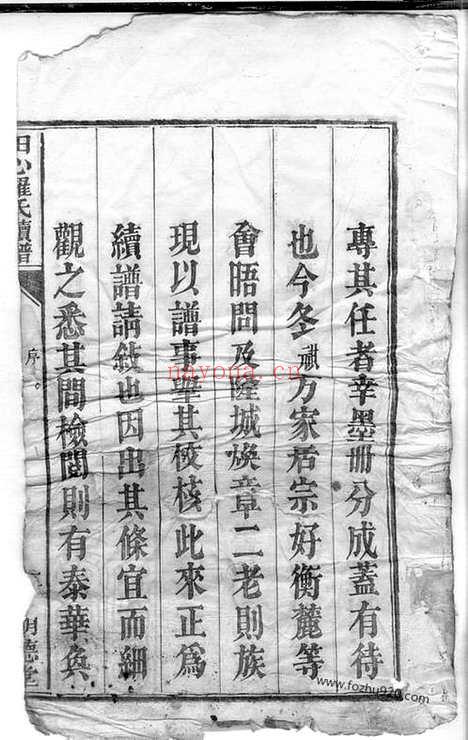 專其任者幸墨冊分成蓋有待
也今冬獻万家居宗好衡麓等
會晤問及隆城煥章二老則族
現以譜事肇其校核此來正為
續譜請敘也因出其條宜而細
觀之悉其間檢閱則有泰華奐
田心羅氏續譜
序
明德堂
nayona.cn
www.fozhu920.com